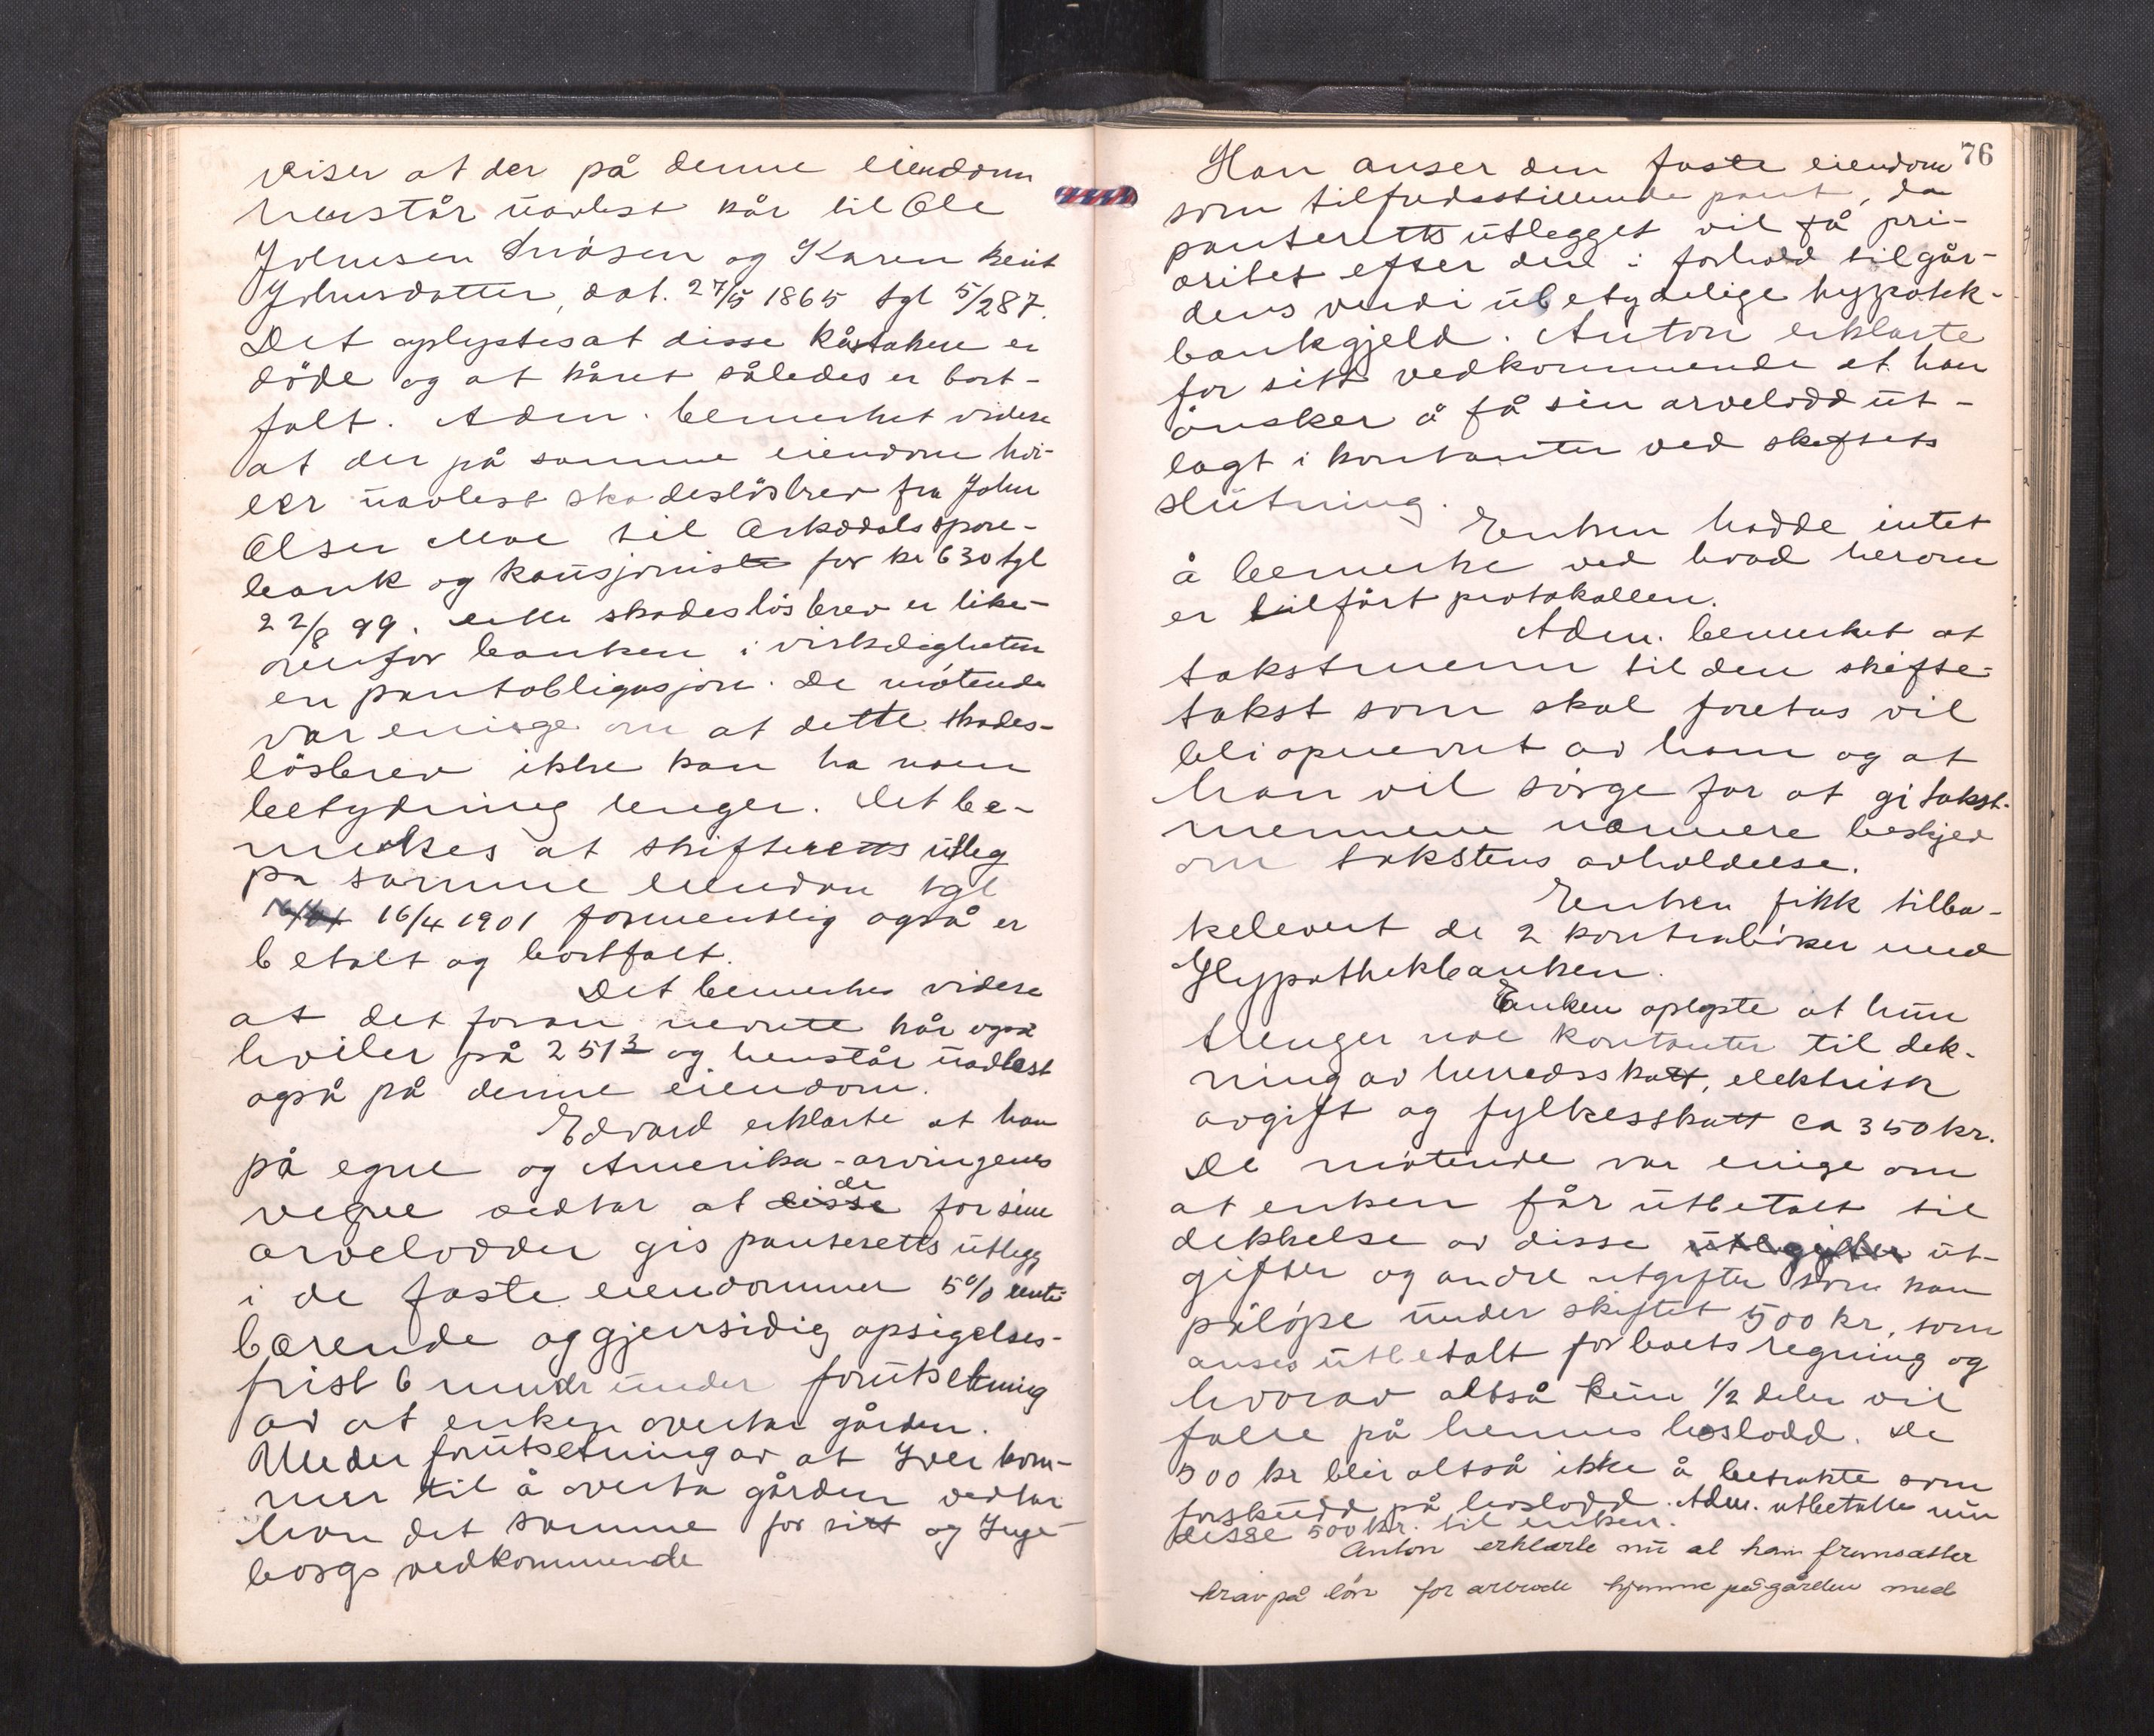 viser at der på denne eiendom
henstår uavlest kår til Ole
Johnsen Snoåsen og Karen Beret
Johnsdatter, dat. 27/5 1865 tgl 5/287.
Det oplystes at disse kårtakere er
döde og at kåret således er bort-
falt. Adm. bemerket videre
at der på samme eiendom hvi-
ler uavlest skadeslösbrev fra John
Olsen Moe til Orkedals spare-
bank og kausjonister for kr 630 tgl
22/8 99. dette skadeslösbrev er like-
ovenfor banken i virkeligheten
en pantobligasjon. De mötende
var enige om at dette skades-
lösbrev ikke kan ha noen
betydning lenger. Det be-
merkes at skifteretts utleg
på samme eiendom tgl
16/4 1901 formentlig også er
betalt og bortfalt.
Det bemerkes videre
at det foran nevnte kår også
hviler på 251³ og henstår uavlest
også på denne eiendom.
Edvard erklærte at han
på egne og Amerika-arvingenes
vegne vedtar at de for sine
arvelodder gis panteretts utlegg
i de faste eiendommer 5% rente
bærende og gjensidig opsigelses-
frist 6 mndr under forutsetning
av at enken overtar gården.
Under forutsetning av at Iver kom-
mer til å overta gården vedtar
han det samme for sitt og Inge-
borgs vedkommende
76
Han anser den faste eiendom
som tilfredsstillende pant, da
panterettsutlegget vil få pri-
oritet efter den i forhold til går-
dens verdi ubetydelige hypotek-
bankgjeld. Anton erklærte
for sitt vedkommende at han
önsker å få sin arvelodd ut-
lagt i kontanter ved skiftets
slutning.
Enken hadde intet
å bemerke ved hvad herom
er tilfört protokollen.
Adm. bemerket at
takstmenn til den skifte-
takst som skal foretas vil
bli opnevnt av ham og at
han vil sörge for at gi takst-
mennene nærmere beskjed
om takstens avholdelse.
Enken fikk tilba-
kelevert de 2 kontrabøker med
Hypothekbanken.
Enken oplyste at hun
trenger noe kontanter til dek-
ning av herredsskatt, elektrisk
avgift og fylkesskatt ca 350 kr.
De mötende var enige om
at enken får utbetalt til
dekkelse av disse ut-
gifter og andre utgifter som kan
påløpe under skiftet 500 kr, som
anses utbetalt for boets regning og
hvorav altså kun 1/2 delen vil
falle på hennes boslodd. De
500 kr blir altså ikke å betrakte som
forskudd på boslodd. Adm. utbetalte nu
disse 500 kr. til enken.
Anton erklærte nu at han fremsætter
krav på lön for arbeide hjemme på gården med